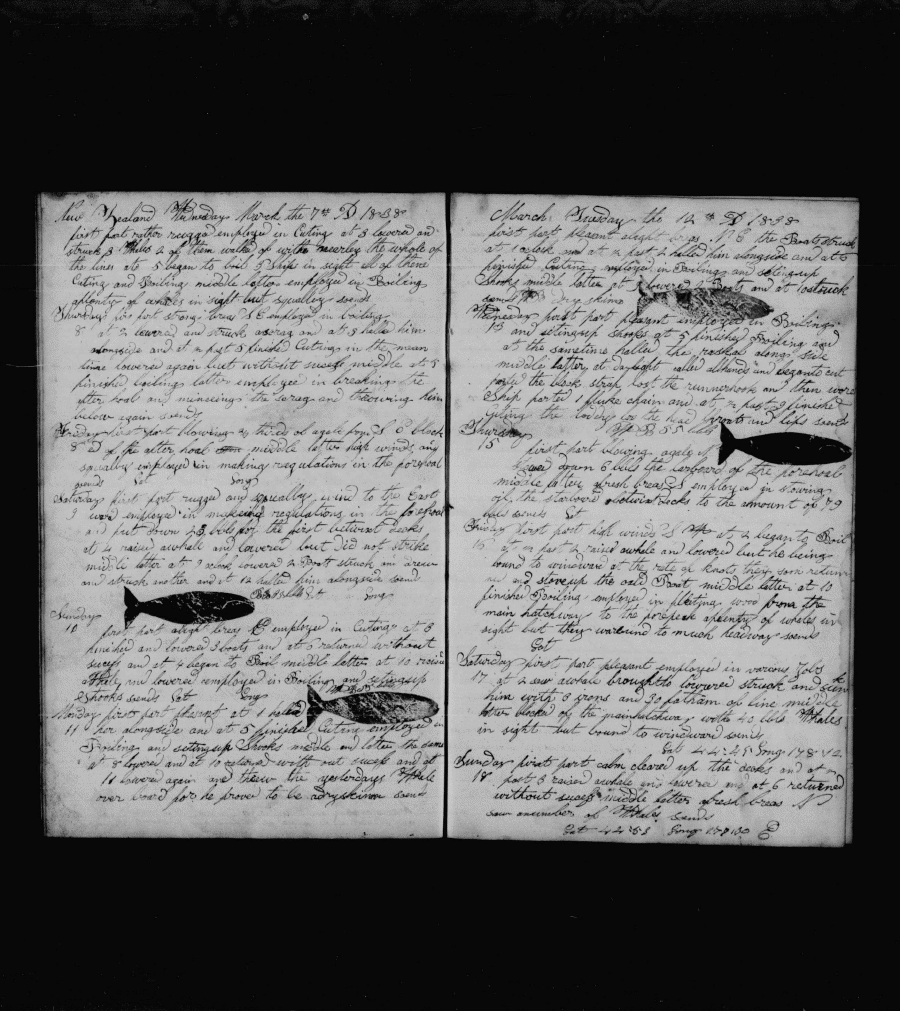 New Zealand Wednesday March the 7th D 1838
first part rather rugged employed in Cuting at 5 lowered and
struck 3 Whales 2 of them walked of with neerley the whole of
the lines at 5 began to boil 5 Ships in sight all of them
Cuting and Boiling middle latter employed in Boiling
aplenty of whales in sight but squalley so ends
Thursday first part strong breas S E employed in boiling
8 at 2 lowered and struck a scrag and at 3 halled him
alongside and at ½ past 5 finished Cuting in the mean
time lowered again but without sucess middle at 5
finished boiling latter employed in breaking the
after hoal and minceing the scrag and throwing him
below again so ends
Friday first part blowing a thrid of agale from S
of the after hoal middle latter high winds and
squaley employed in making regulations in the forehoal
so ends Lat Long
Saturday first part rugged and squalley wind to the East
9 ward employed in makeing regulations in the forehoal
and put down 23 bbls of the first between decks
at 4 raised awhall and lowered but did not strike
midle latter at 9 oclock lowered 2 Boats struck an drew
and struck another and at 12 halled him alongside so end
Lat Long
Sunday
10
first part aligt breas E employed in Cuting at 3
finished and lowered 3 boats and at 5 returned without
sucess and at 4 began to Boil middle latter at 10 raised
aWhale and lowered employed in Boiling and setingup
Shooks so ends Lat Long
Monday first part pleasant at 1 halled
11 her alongside and at 5 finished Cuting employed in
Boiling and setingup Shooks middle and latter the same
at 8 lowered and at 10 returned with out sucess and at
11 lowered again and threw the yesterdays Whale
over board for he proved to be a dryskinn so ends
March Tuesday the 12th D 1838
first part pleasant alight breas N E the Boats struck
at oclock and at ½ past 2 halled him alongside and at 5
finished Cuting employed in Boiling and setingup
Shooks middle latter at lowered Boats and at 10 struck
so ends dry skinn
Wednesday first part pleasant employed in Boiling
13 and setingup shooks at 5 finished Boiling and
at the sametime halled the raskal along side
middle latter at daylight called allhands and cut
parted the back strap lost the runnerhook and then wore
Ship parted 1 fluke chain and at ½ past 9 finished
cuting the body lost the head and lips so ends
Thursday
15
first part blowing agale of
down 6 bbls the larboard of the forehoal
middle latter fresh breas S employed in stowing
oil the starbord betwixt decks to the amount of 79
bbls so ends Lat
Friday first part high winds S W at 2 began to Boil
16 at ½ past 2 raised awhale and lowered but he being
bound to winward at the rate of knots they soon return
ed and stove up the old Boat middle latter at 10
finished Boiling employed in fleeting from the
main hatchway to the forepeak aplenty of whales in
sight but they was bound to much headway so ends
Lat
Saturday first part pleasant employed in various Jobs
17 at 2 saw awhale broughtto lowered struck and sunk
him with 3 irons and 30 fatham of line middle
latter blocked of the mainhatchway with 40 bbls Whales
in sight but bound to windward so ends
Lat 44:45 Long 178:42
Sunday first part calm cleared up the decks and at
18 past 5 raised awhale and lowered and at 6 returned
without sucess middle latter afresh breas N
saw anumber of Whales So ends
Lat 44:53 Long 178:30 E